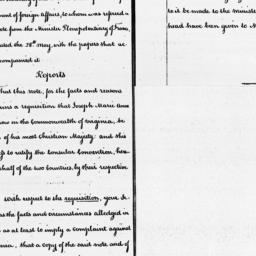 ment of foreign Affairs, to whom was referred a
note from the Minister Plenipotentiary of France,
dated the 28th May, with the papers that ac
companied it
Reports
That this note, for the facts and reasons
a requisition that Joseph Marie Anne
now in the Commonwealth of Virginia, be
of his most Christian Majesty; and this
to ratify the Consular Convention, here
behalf of the two Countries, by their respective
With respect to the requisition, your Se
as the facts and circumstances alledged in
as at least to imply a complaint against
that a copy of the said note and of
to it be made to the Minister
head have been given to M